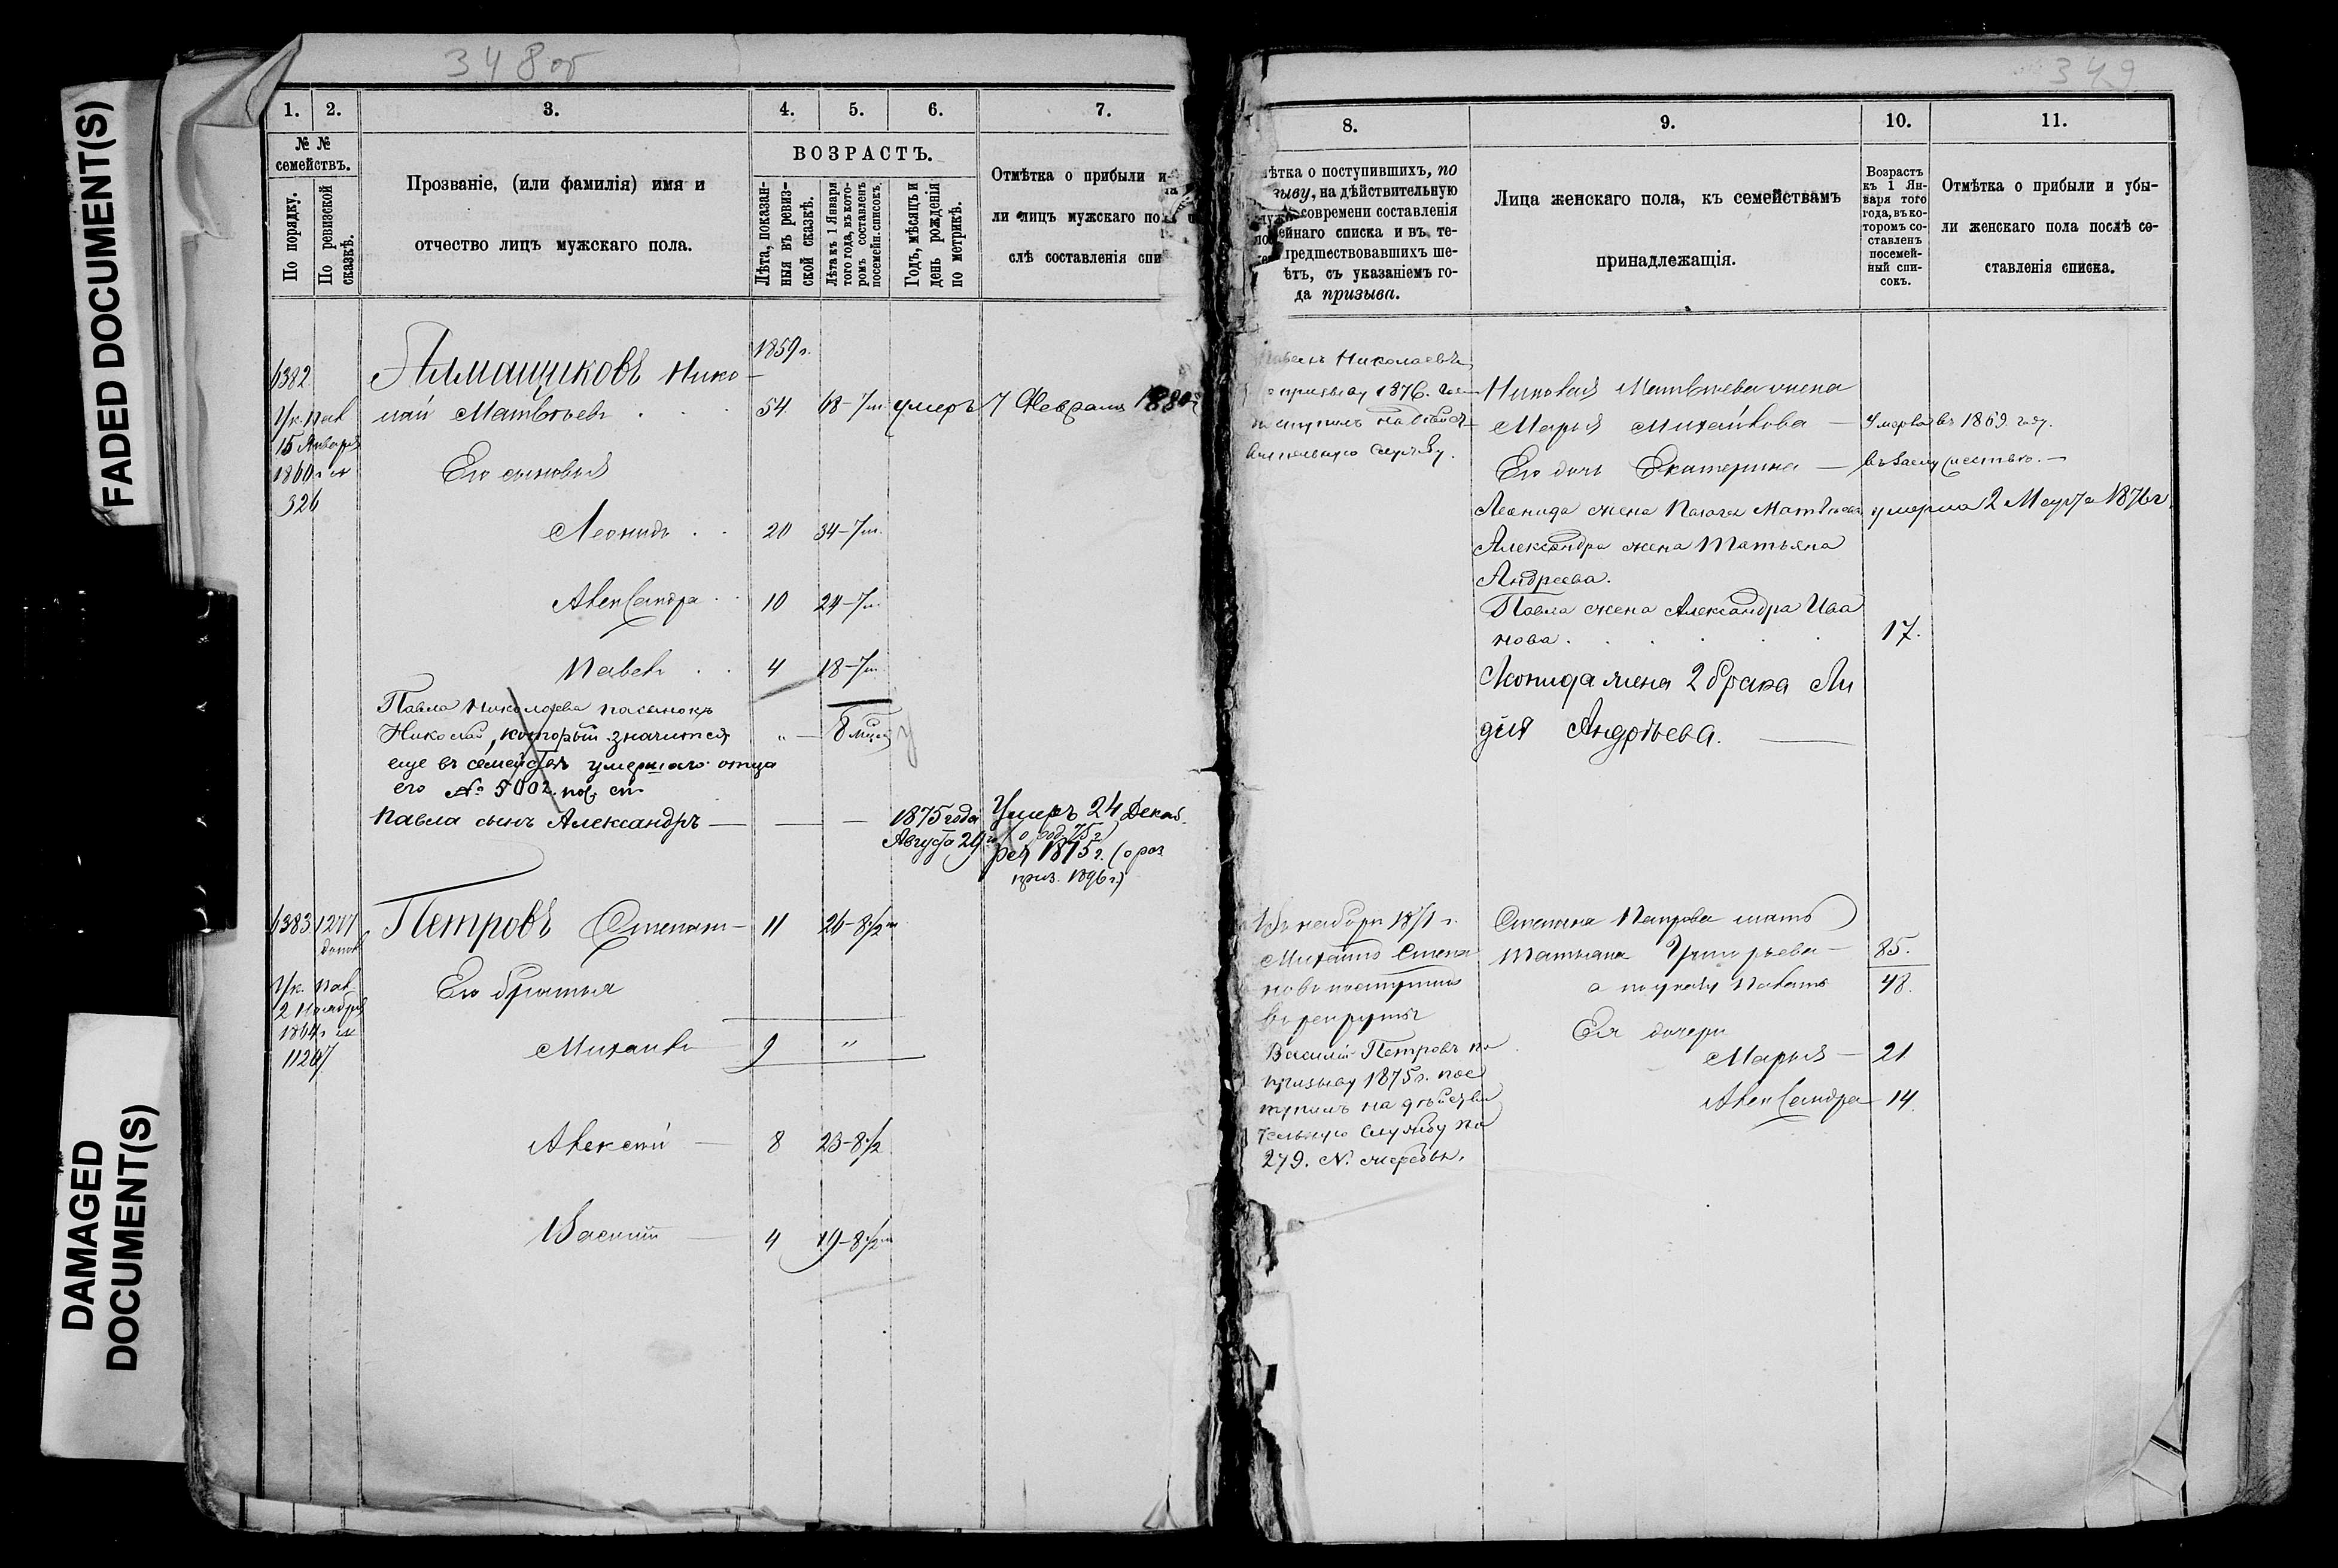 FADED DOCUMENT(S)
DAMAGED
DOCUMENT(S)
348об
1. 2. 3. 4. 5. 6. 7.
№ №
семействъ.
По порядку.
По ревизской
сказкѣ.
Прозваніе, (или фамилія) имя и
отчество лицъ мужскаго пола.
ВОЗРАСТЪ.
Лѣта, показан-
ныя въ ревиз-
ской сказкѣ.
Лѣта къ 1 Января
того года, въ кото-
ромъ составленъ
посемейн. списокъ.
Годъ, мѣсяцъ и
день рожденія
по метрикѣ.
Отмѣтка о прибыли и
ли лицъ мужскаго пол
слѣ составленія спи
1859 г.
6382
Нико
Ук. Пал лай Матвѣевъ 54 68-7м. умеръ 7 Февраля
15 Января
1860 г. №
326
Его сыновья
Леонидъ 20 34-7м.
Александра 10 24-7м.
Павелъ 4 18-7м.
Павла Николаева пасынокъ
Николай, который значится „ 8 мѣсяц
еще въ семействѣ умершаго отца
его № 5002 пос. сп.
Павла сынъ Александръ 1875 года Умеръ 24 Декаб.
Августа 29
ря 1875 г.
приз. 1896 г.)
6383 1277 Петровъ Степанъ 11 26-8½м
Ук. Пал
2 Ноября
1864 г. №
11207
Его братья
Михаилъ 9 „
Алексѣй 8 23-8½
Василій 4 19-8½м
349
8. 9. 10. 11.
ѣтка о поступившихъ, по
зыву, на дѣйствительную
современи составленія
ейнаго списка и въ те-
предшествовавшихъ ше-
ѣтъ, съ указаніемъ го-
да призыва.
Лица женскаго пола, къ семействамъ
принадлежащія.
Возрастъ
къ 1 Ян-
варя того
года, въ ко-
торомъ со-
ставленъ
посемей-
ный спи-
сокъ.
Отмѣтка о прибыли и убы-
ли женскаго пола послѣ со-
ставленія списка.
Павелъ Николаевъ
по призыву 1876 года
поступилъ на дѣйст
вительную службу.
Николая Матвѣева жена
Марья Михайлова Умерла въ 1869 году.
Его дочь Екатерина въ замужествѣ.
Леонида жена Пелагея Матвѣева умерла 2 Марта 1876 г.
Александра жена Татьяна
Андреева.
Павла жена Александра Ива
нова 17.
Леонида жена 2 брака Ли
дія Андрѣева.
Въ наборъ 1871 г.
Михаилъ Степа
новъ поступилъ
въ рекруты
Василій Петровъ по
призыву 1875 г. пос
тупилъ на дѣйстви
тельную службу по
279. № жеребья.
Степана Петрова мать
Татьяна Григорьева 85.
а по указу Палаты 48.
Ея дочери
Марья 21
Александра 14.